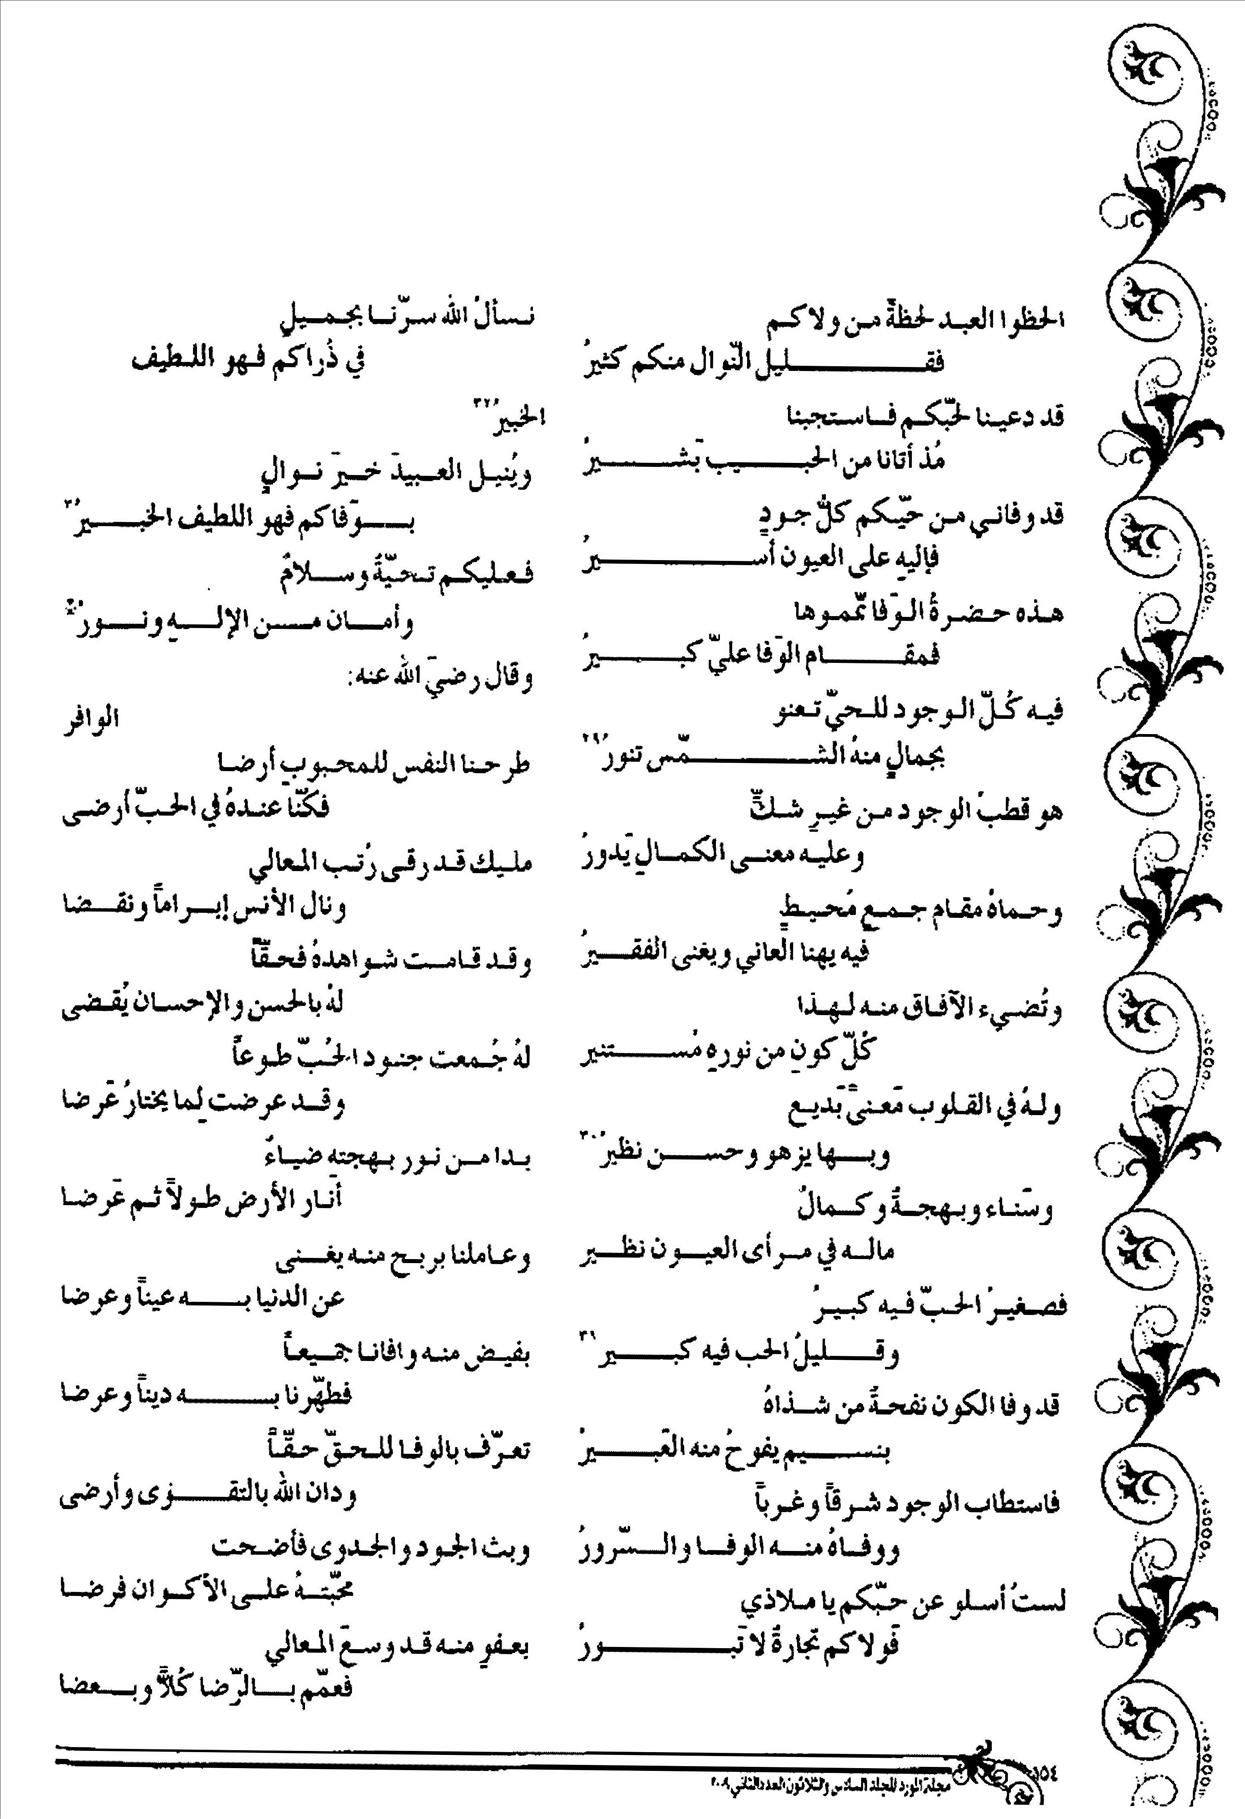 الحظوا العبد لحظةً من ولاكم
فقـليل النّوال منكم كثيرُ
قد دعينا لحبّكم فاستجبنا
مُذ أتانا من الحبيب بَشيرُ
قد وفاني من حيّكم كلُّ جودٍ
فإليهِ على العيون أسيرُ
هذه حضرةُ الوَفا يمّموها
فمقام الوَفا عليّ كبيرُ
فيه كُلّ الوجود للحيّ تعنو
بجمالٍ منهُ الشمّس تنورُ٢٩
هو قطبُ الوجود من غيرِ شكٍّ
وعليه معنى الكمالِ يَدورُ
وحماهُ مقام جمعٍ مُحيطٍ
فيه يهنا العاني ويغنى الفقيرُ
وتُضيء الآفاق منه لهذا
كُلّ كونٍ من نورهِ مُستنير
ولهُ في القلوب مَعنىً بَديع
وبها يزهو وحسن نظيرُ٣٠
وسَناء وبهجةٌ وكمالُ
ماله في مرأى العيون نظير
فصغيرُ الحبّ فيه كبيرُ
وقليلُ الحب فيه كبير٣١
قد وفا الكون نفحةٌ من شذاهُ
بنسيم يفوحُ منه العَبيرُ
فاستطاب الوجود شرقاً وغرباً
ووفاهُ منه الوفا والسّرورُ
لستُ أسلو عن حبّكم يا ملاذي
فَولاكم تجارةٌ لا تَبورُ
نسألُ الله سرّنا بجميلٍ
في ذُراكم فهو اللطيف
الخبيرُ٣٢
ويُنيل العبيدَ خيرَ نوالٍ
بوَفاكم فهو اللطيف الخبيرُ٣
فعليكم تحيّةٌ وسلامٌ
وأمان من الإلهِ ونورُ
وقال رضيَ الله عنه:
الوافر
طرحنا النفس للمحبوبِ أرضا
فكنّا عندهُ في الحبّ أرضى
مليك قد رقى رُتب المعالي
ونال الأنس إبراماً ونقضا
وقد قامت شواهدهُ فحقّاً
لهُ بالحسن والإحسان يُقضى
لهُ جُمعت جنود الحُبّ طوعاً
وقد عرضت لِما يختارُ عَرضا
بدا من نور بهجتهِ ضياءُ
أنار الأرض طولاً ثم عَرضا
وعاملنا بربح منه يغني
عن الدنيا به عيناً وعرضا
بفيض منه وافانا جميعاً
فطهّرنا به ديناً وعرضا
تعرّف بالوفا للحقّ حقّاً
ودان الله بالتقوى وأرضى
وبث الجود والجدوى فأضحت
محبّتهُ على الأكوان فرضا
بعفوٍ منه قد وسعَ المعالي
فعمّم بالرّضا كُلاًّ وبعضا
١٥٤
مجلة المورد المجلد السادس والثلاثون العدد الثاني ٢٠٠٩